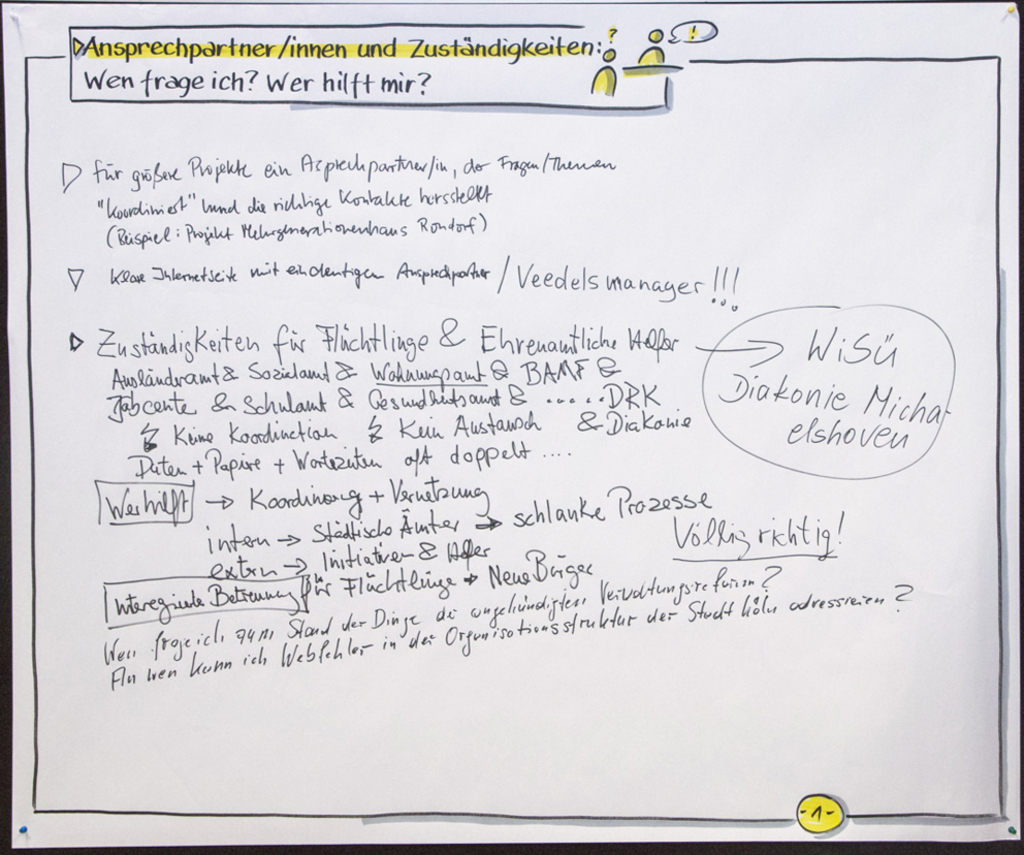 Ansprechpartner/innen und Zuständigkeiten:
Wen frage ich? Wer hilft mir?
?
!
für größere Projekte ein Asprechpartner/in, der Fragen/Themen
"koordiniert" und die richtige Kontakte herstellt
(Beispiel: Projekt Mehrgenerationenhaus Rondorf)
klare Internetseite mit eindeutigen Ansprechpartner / Veedelsmanager!!!
Zuständigkeiten für Flüchtlinge & Ehrenamtliche Helfer →
WiSü
Diakonie Micha-
elshoven
Ausländeramt & Sozialamt & Wohnungsamt & BAMF &
Jobcente & Schulamt & Gesundheitsamt & ...... DRK
Keine Koordination Kein Austausch & Diakonie
Daten + Papire + Wartezeiten oft doppelt ....
Wer hilft → Koordinierung + Vernetzung
intern → Städtische Ämter → schlanke Prozesse
extern → Initiativen & Helfer
Völlig richtig!
Betreuung für Flüchtlinge → Neue Bürger
Wen frage ich zum Stand der Dinge der angekündigten Verwaltungsreform?
An wen kann ich Webfehler in der Organisationsstruktur der Stadt Köln adressieren?
-1-